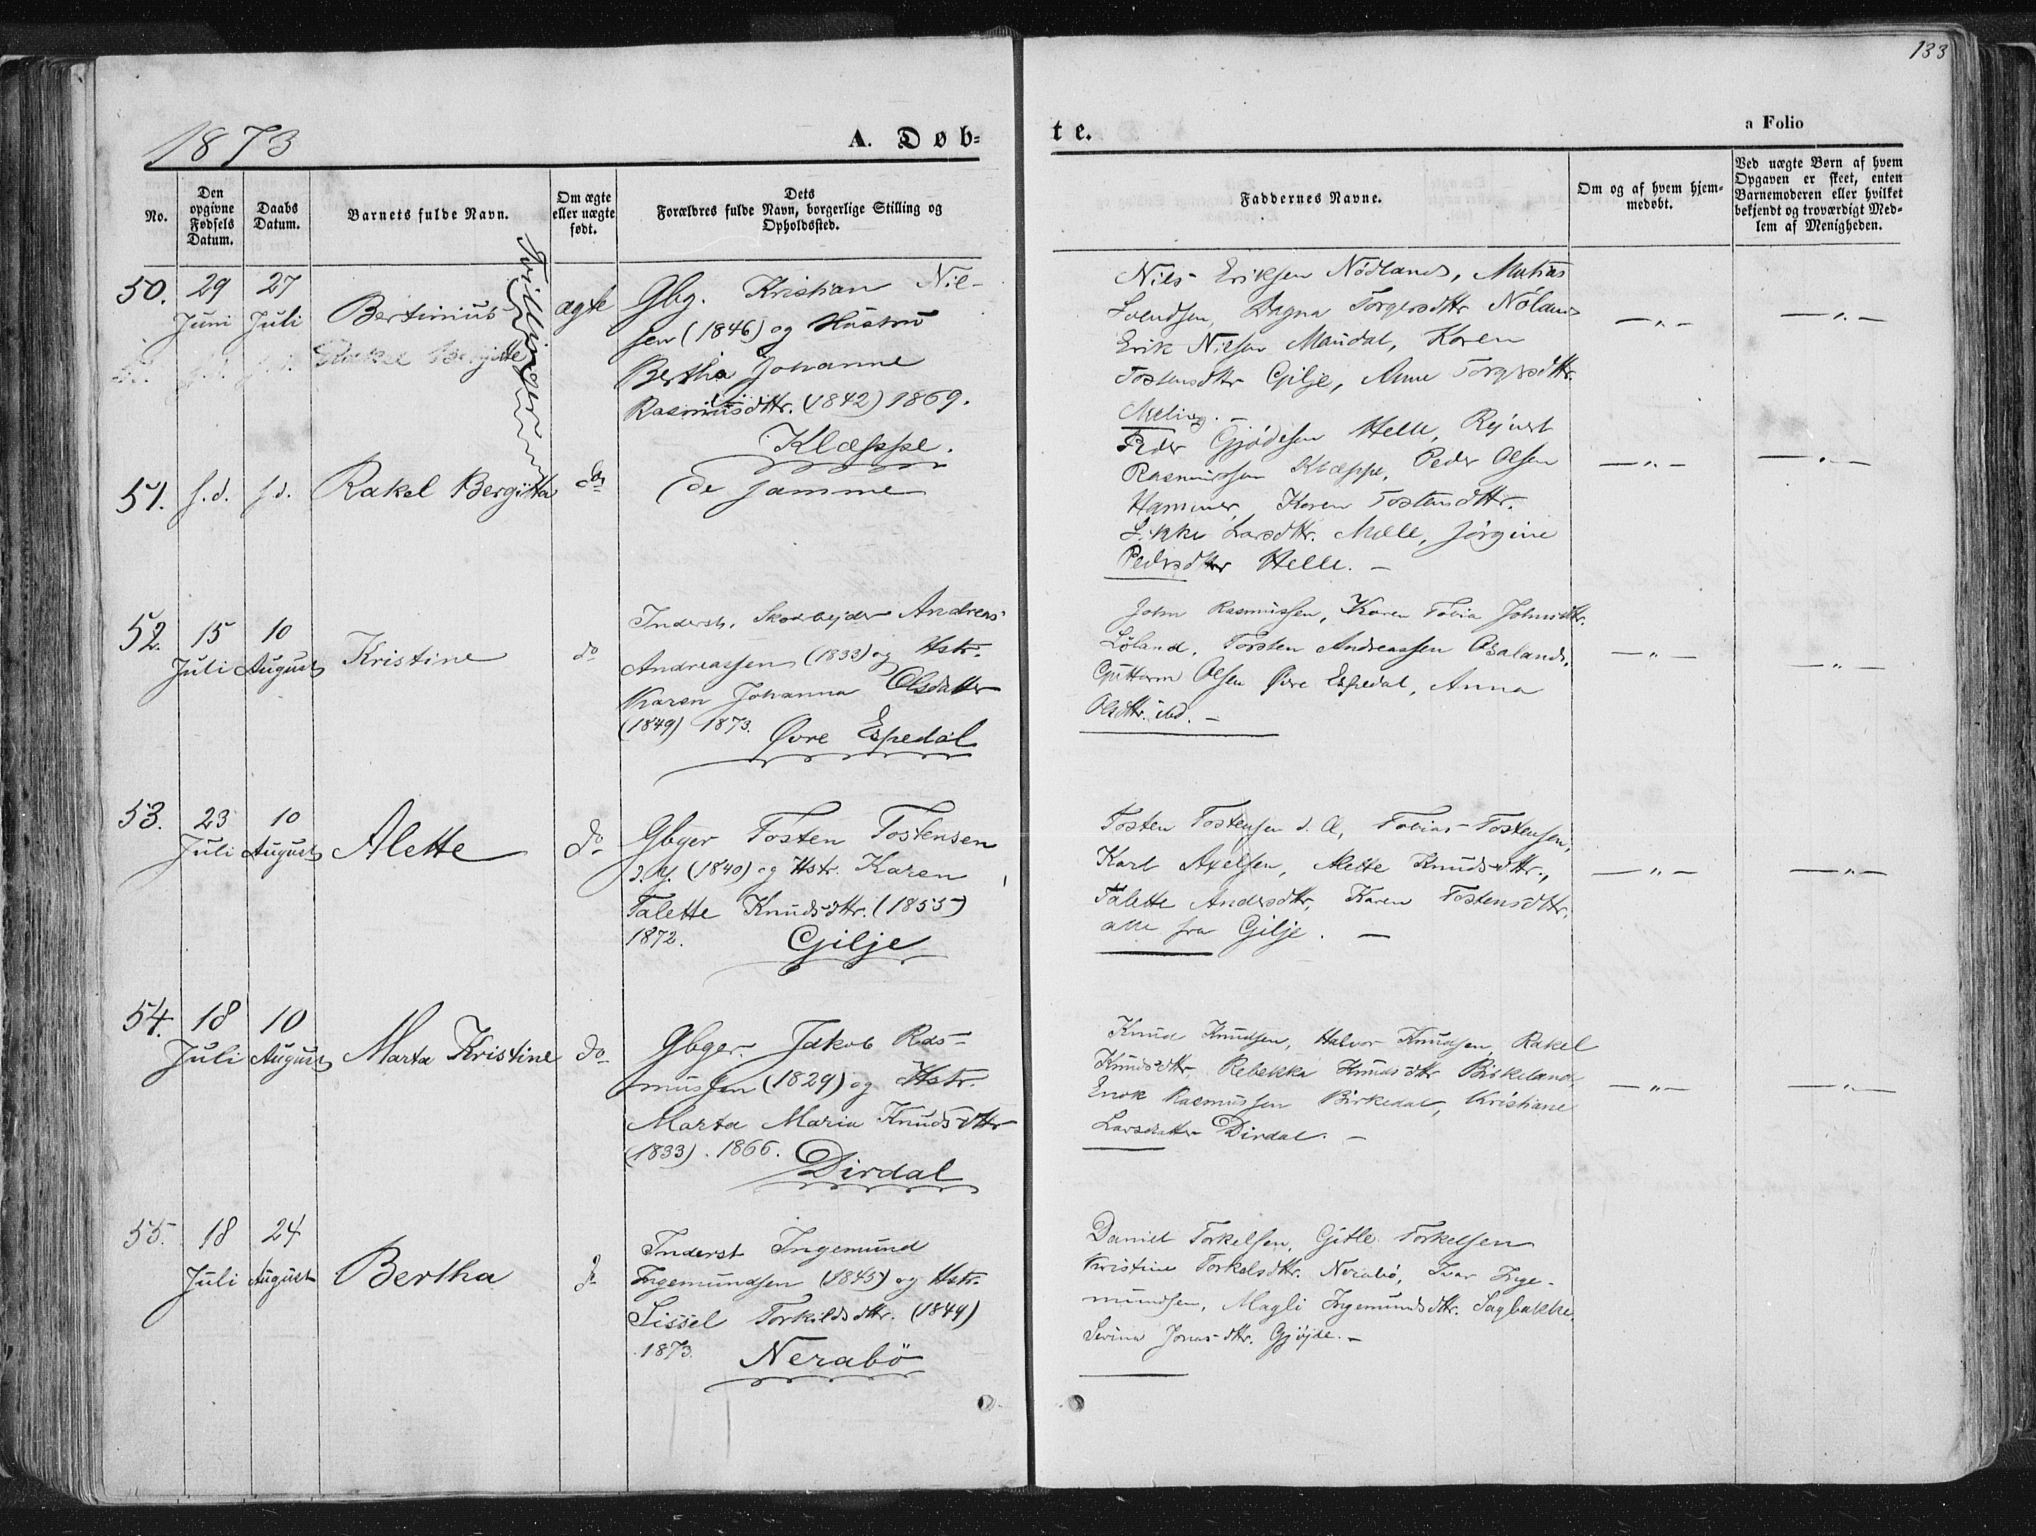 133
1873
A. Døb-
te.
a Folio
No.
Den opgivne Fødsels Datum.
Daabs Datum.
Barnets fulde Navn.
Om ægte eller uægte født.
Dets Forældres fulde Navn, borgerlige Stilling og Opholdssted.
Faddernes Navne.
Om og af hvem hjemmedøbt.
Ved uægte Børn af hvem Opgaven er skeet, enten Barnemoderen eller hvilket bekjendt og troværdigt Medlem af Menigheden.
50.
29 Juni
27 Juli
Bertinius
Tvillinger
Rakel Bergitte
ægte
Gbg. Kristian Niel-
sen (1846) og Hustru
Bertha Johanne
Rasmusdttr. (1842) 1869.
Klæppe.
Nils Eriksen Nødland, Matias
Svendsen, Dagna Torgersdttr Nøland
Erik Nilsen Maudal, Karen
Tostensdttr Gilje, Anne Torgersdttr.
Meling. –
— „ —
— „ —
51.
s.d.
s.d.
Rakel Bergitta
do
de samme
Peder Gjødesen Helle, Rejnert
Rasmussen Klæppe, Peder Olsen
Hammer, Karen Tostensdttr.
Larsdttr. Mæle, Jørgine
Pedersdttr Helle. –
— „ —
— „ —
52.
15 Juli
10 August
Kristine
do
Inderst, Skoarbejder Andreas
Andreassen (1833) og Hstr.
Karen Johanna Olsdatter
(1849) 1873.
Øvre Espedal
John Rasmussen, Karen Tobia Johnsdttr.
Løland, Torsten Andreassen Osaland,
Guttorm Olsen Øvre Espedal, Anna
Olsdttr. ibd. –
— „ —
— „ —
53.
23 Juli
10 August
Alette
do
Gbger Tosten Tostensen
d. y. (1840) og Hstr. Karen
Talette Knudsdttr. (1855)
1872.
Gilje
Tosten Tostensen d. Æ, Tobias Tostensen,
Karl Axelsen, Mette Knudsdttr.,
Talette Andersdttr, Karen Tostensdttr.
alle fra Gilje. –
— „ —
— „ —
54.
18 Juli
10 August
Marta Kristine
do
Gbger. Jakob Ras-
mussen (1829) og Hstr.
Marta Maria Knudsdttr
(1833). 1866.
Dirdal
Knud Knudsen, Halvor Knudsen, Rakel
Knudsdttr, Rebekka Knudsdttr Birkeland
Enok Rasmussen Birkedal, Kristiane
Larsdatter Dirdal. –
— „ —
— „ —
55.
18 Juli
24 August
Bertha
do
Inderst Ingemund
Ingemundsen (1845) og Hstr.
Sissel Torkildsdttr. (1849)
1873.
Nerabö
Daniel Torkelsen, Gitle Torkelsen
Kristine Torkelsdttr. Nerabø, Ivar Inge-
mundsen, Magli Ingemundsdttr. Sagbakke
Serina Jonasdttr. Gjøjde. –